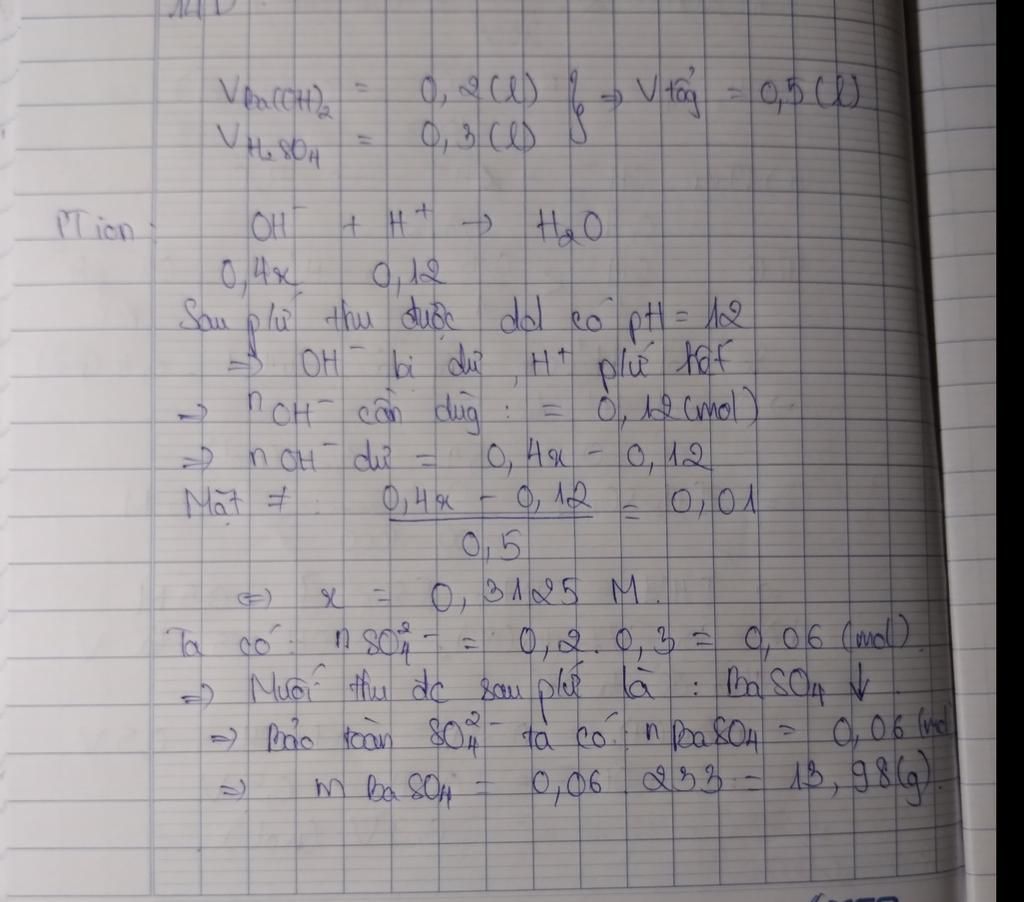 V Ba(OH)₂ = 0,2(l) } ⇒ V tổng = 0,5(l)
V H₂SO₄ = 0,3(l)
PT ion: OH⁻ + H⁺ → H₂O
0,4x 0,12
Sau pứ thu được dd có pH = 12
⇒ OH⁻ bị dư, H⁺ pứ hết
⇒ nOH⁻ cần dùg : = 0,12(mol)
⇒ nOH⁻ dư = 0,4x - 0,12
Mặt ≠ (0,4x - 0,12)/0,5 = 0,01
⇔ x = 0,3125 M.
Ta có: nSO₄²⁻ = 0,2.0,3 = 0,06 (mol)
⇒ Muối thu đc sau pứ là : BaSO₄ ↓
⇒ Bảo toàn SO₄²⁻ ta có: nBaSO₄ = 0,06 (mol
⇒ mBaSO₄ = 0,06 233 = 13,98(g).